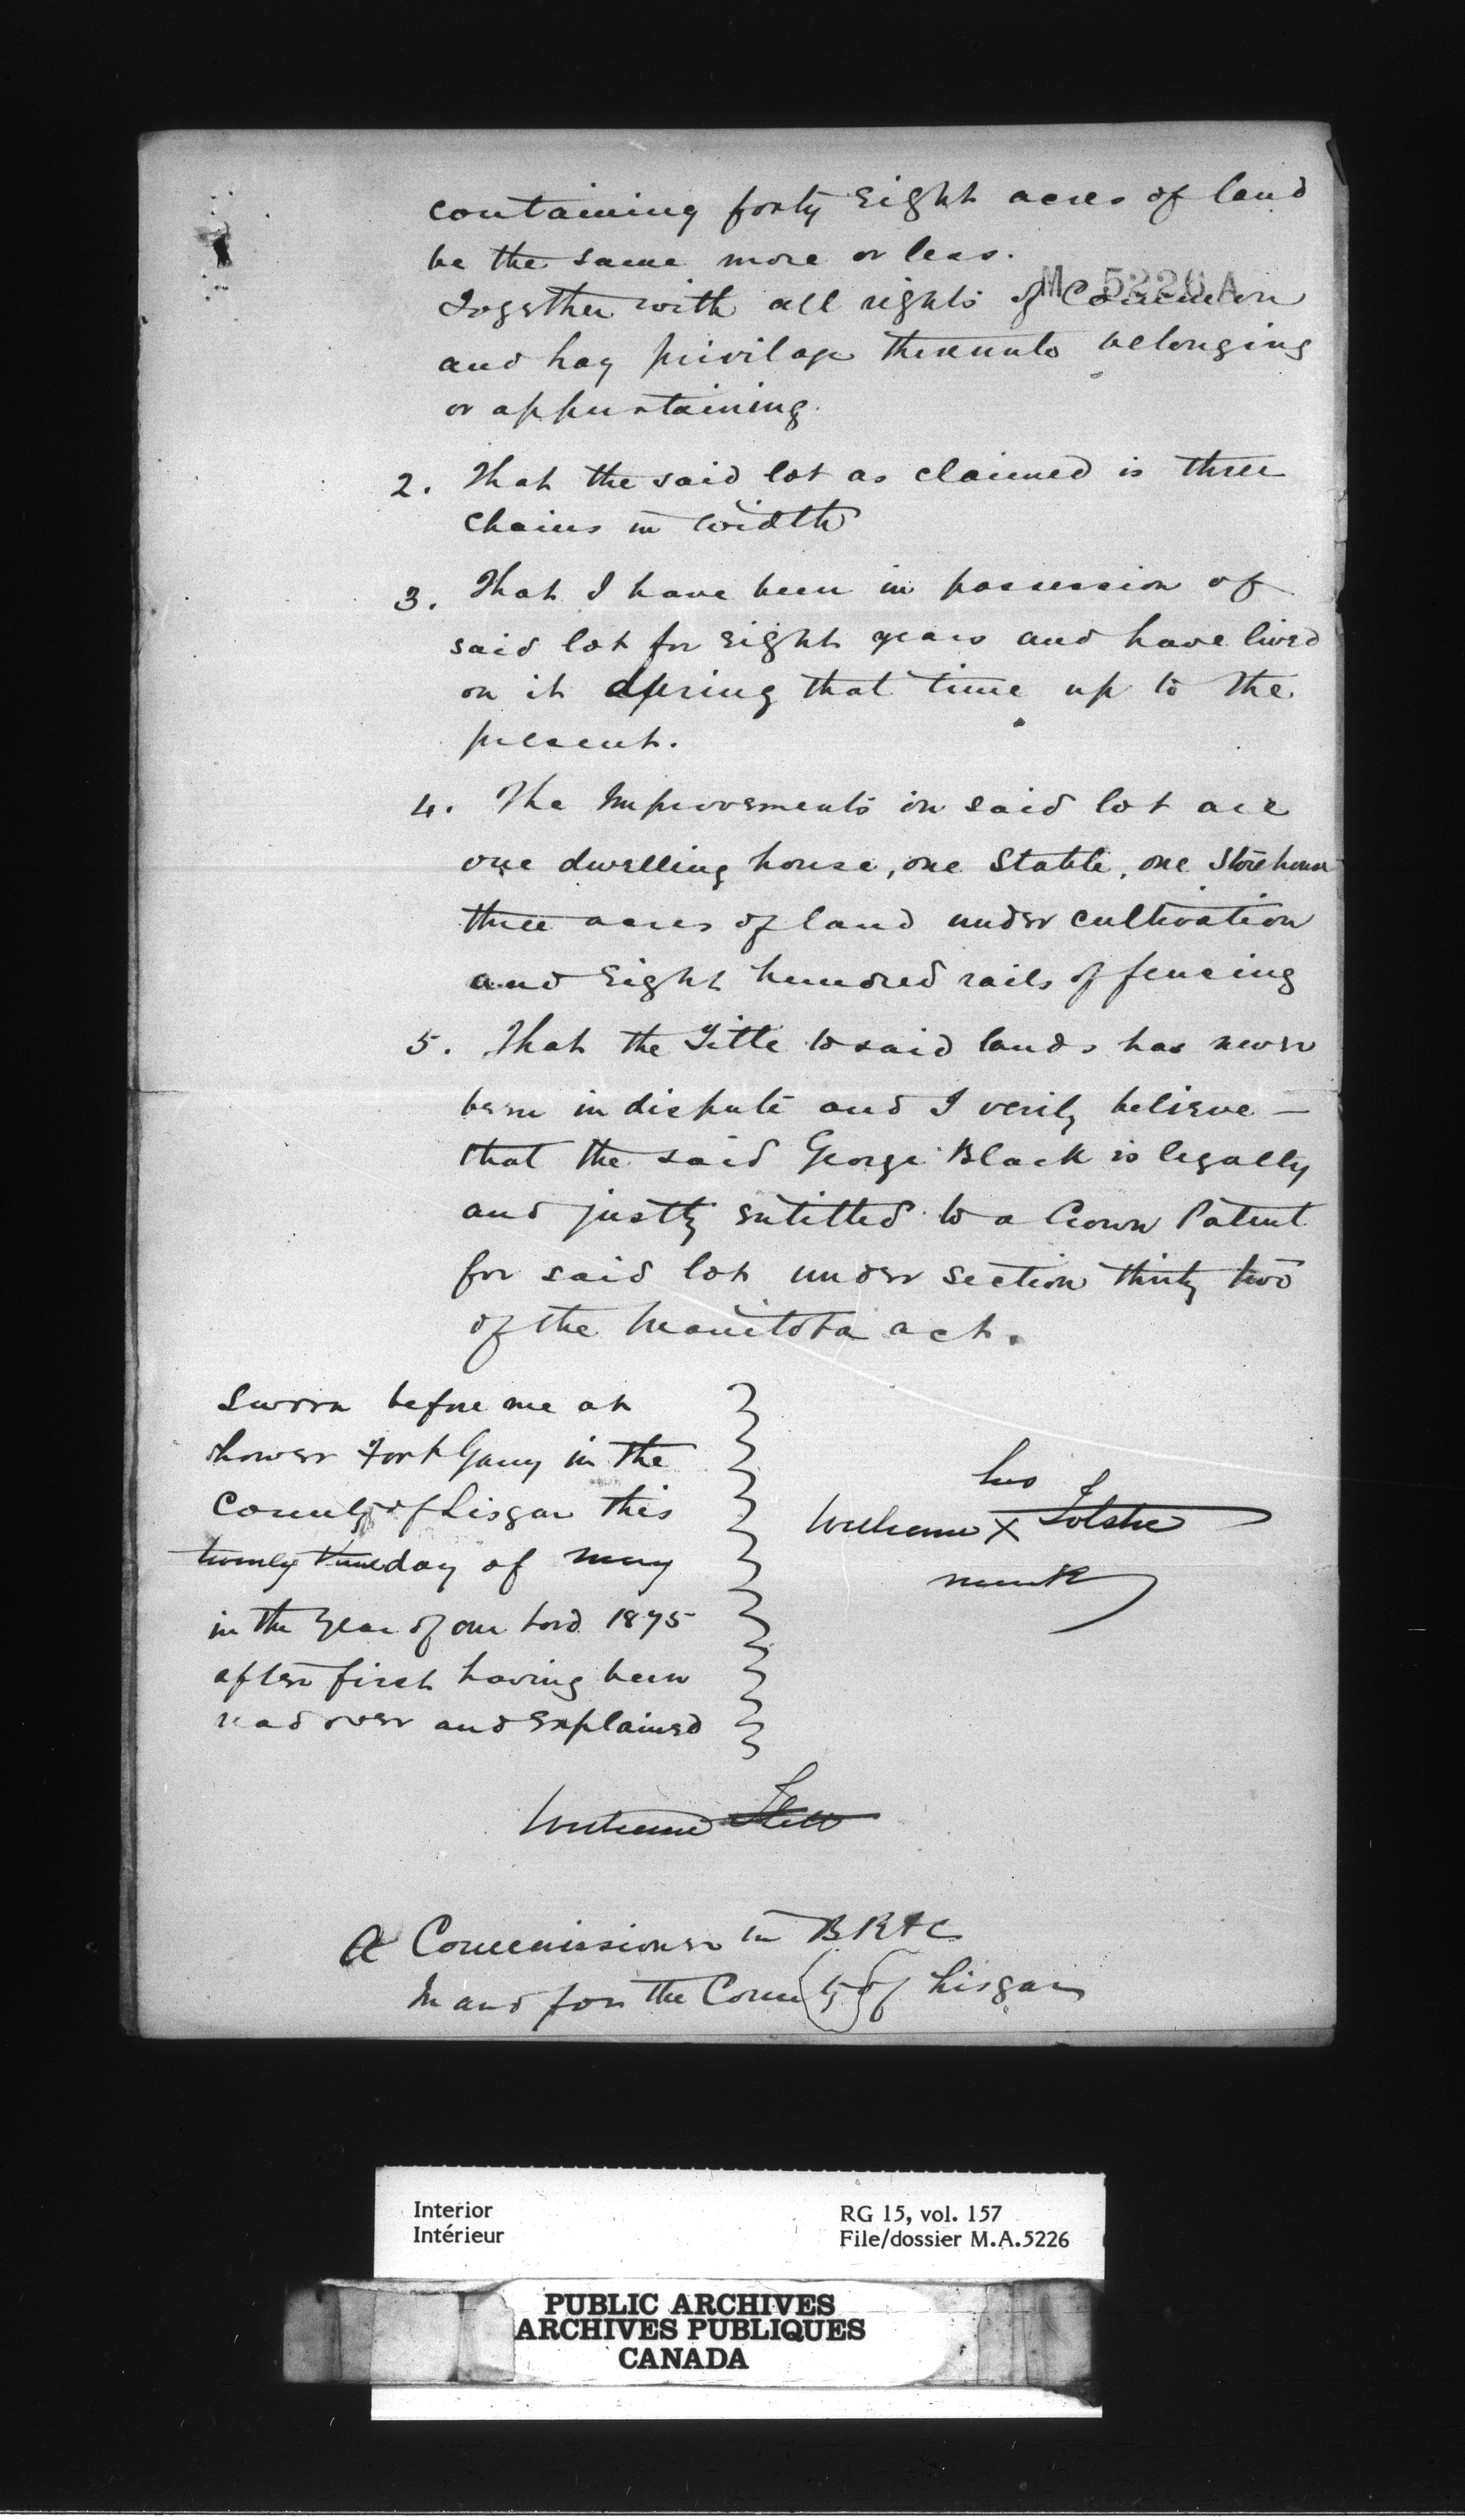 containing forty Eight acres of land
be the same more or less.
M 5226 A
Together with all rights of Common
and hay privilage thereunto belonging
or appurtaining.
2. That the said lot as claimed is three
chains in width
3. That I have been in possession of
said lot for Eight years and have lived
on it during that time up to the
present.
4. The Improvements on said lot are
one dwelling house, one Stable, one Storehouse
three acres of land under cultivation
and Eight hundred rails of fencing
5. That the Title to said lands has never
been in dispute and I verily believe —
that the said George Black is legally
and justly entitled to a Crown Patent
for said lot under section thirty two
of the Manitoba act.
Sworn before me at
Lower Fort Garry in the
County of Lisgar this
twenty day of May
in the Year of our Lord 1875
after first having been
read over and Explained
his
William X
mark
William Flett
A Commissioner in B R &c
In and for the County of Lisgar
Interior
Intérieur
RG 15, vol. 157
File/dossier M.A.5226
PUBLIC ARCHIVES
ARCHIVES PUBLIQUES
CANADA